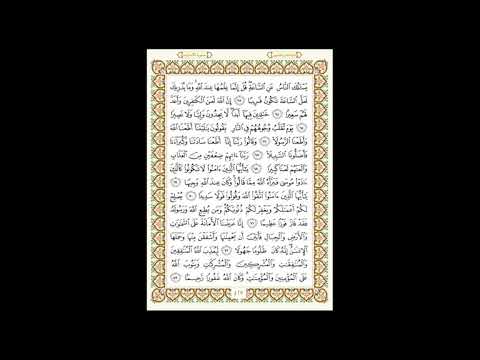 يَسْـَٔلُكَ ٱلنَّاسُ عَنِ ٱلسَّاعَةِ قُلْ إِنَّمَا عِلْمُهَا عِندَ ٱللَّهِ وَمَا يُدْرِيكَ
لَعَلَّ ٱلسَّاعَةَ تَكُونُ قَرِيبًا ٦٣ إِنَّ ٱللَّهَ لَعَنَ ٱلْكَٰفِرِينَ وَأَعَدَّ
لَهُمْ سَعِيرًا ٦٤ خَٰلِدِينَ فِيهَآ أَبَدًا لَّا يَجِدُونَ وَلِيًّا وَلَا نَصِيرًا
٦٥ يَوْمَ تُقَلَّبُ وُجُوهُهُمْ فِى ٱلنَّارِ يَقُولُونَ يَٰلَيْتَنَآ أَطَعْنَا ٱللَّهَ
وَأَطَعْنَا ٱلرَّسُولَا۠ ٦٦ وَقَالُوا۟ رَبَّنَآ إِنَّآ أَطَعْنَا سَادَتَنَا وَكُبَرَآءَنَا
فَأَضَلُّونَا ٱلسَّبِيلَا۠ ٦٧ رَبَّنَآ ءَاتِهِمْ ضِعْفَيْنِ مِنَ ٱلْعَذَابِ
وَٱلْعَنْهُمْ لَعْنًا كَبِيرًا ٦٨ يَٰٓأَيُّهَا ٱلَّذِينَ ءَامَنُوا۟ لَا تَكُونُوا۟ كَٱلَّذِينَ
ءَاذَوْا۟ مُوسَىٰ فَبَرَّأَهُ ٱللَّهُ مِمَّا قَالُوا۟ وَكَانَ عِندَ ٱللَّهِ وَجِيهًا
٦٩ يَٰٓأَيُّهَا ٱلَّذِينَ ءَامَنُوا۟ ٱتَّقُوا۟ ٱللَّهَ وَقُولُوا۟ قَوْلًا سَدِيدًا ٧٠ يُصْلِحْ
لَكُمْ أَعْمَٰلَكُمْ وَيَغْفِرْ لَكُمْ ذُنُوبَكُمْ وَمَن يُطِعِ ٱللَّهَ وَرَسُولَهُۥ
فَقَدْ فَازَ فَوْزًا عَظِيمًا ٧١ إِنَّا عَرَضْنَا ٱلْأَمَانَةَ عَلَى ٱلسَّمَٰوَٰتِ
وَٱلْأَرْضِ وَٱلْجِبَالِ فَأَبَيْنَ أَن يَحْمِلْنَهَا وَأَشْفَقْنَ مِنْهَا وَحَمَلَهَا
ٱلْإِنسَٰنُ إِنَّهُۥ كَانَ ظَلُومًا جَهُولًا ٧٢ لِّيُعَذِّبَ ٱللَّهُ ٱلْمُنَٰفِقِينَ
وَٱلْمُنَٰفِقَٰتِ وَٱلْمُشْرِكِينَ وَٱلْمُشْرِكَٰتِ وَيَتُوبَ ٱللَّهُ
عَلَى ٱلْمُؤْمِنِينَ وَٱلْمُؤْمِنَٰتِ وَكَانَ ٱللَّهُ غَفُورًا رَّحِيمًا ٧٣
٤٢٧